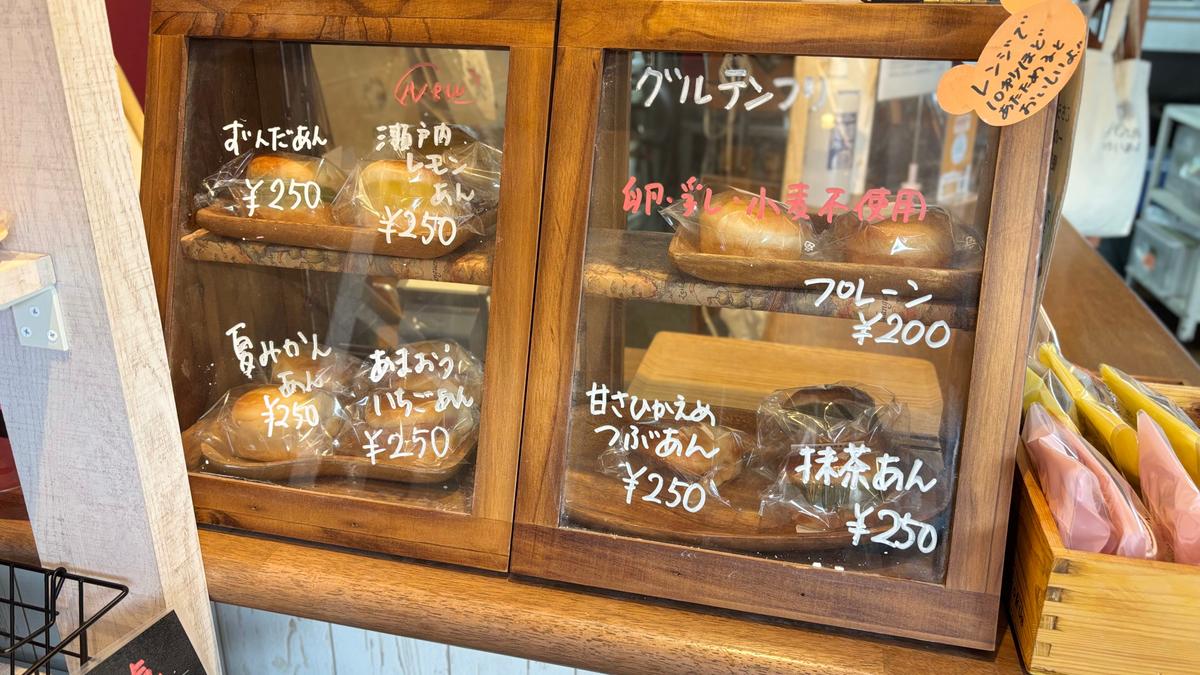 New
ずんだあん
¥250
瀬戸内
レモン
あん
¥250
夏みかん
あん
¥250
あまおう
いちごあん
¥250
グルテンフリー
卵・乳・小麦不使用
プレーン
¥200
甘さひかえめ
つぶあん
¥250
抹茶あん
¥250
レンジで
10秒ほど
あたためると
おいしいよ